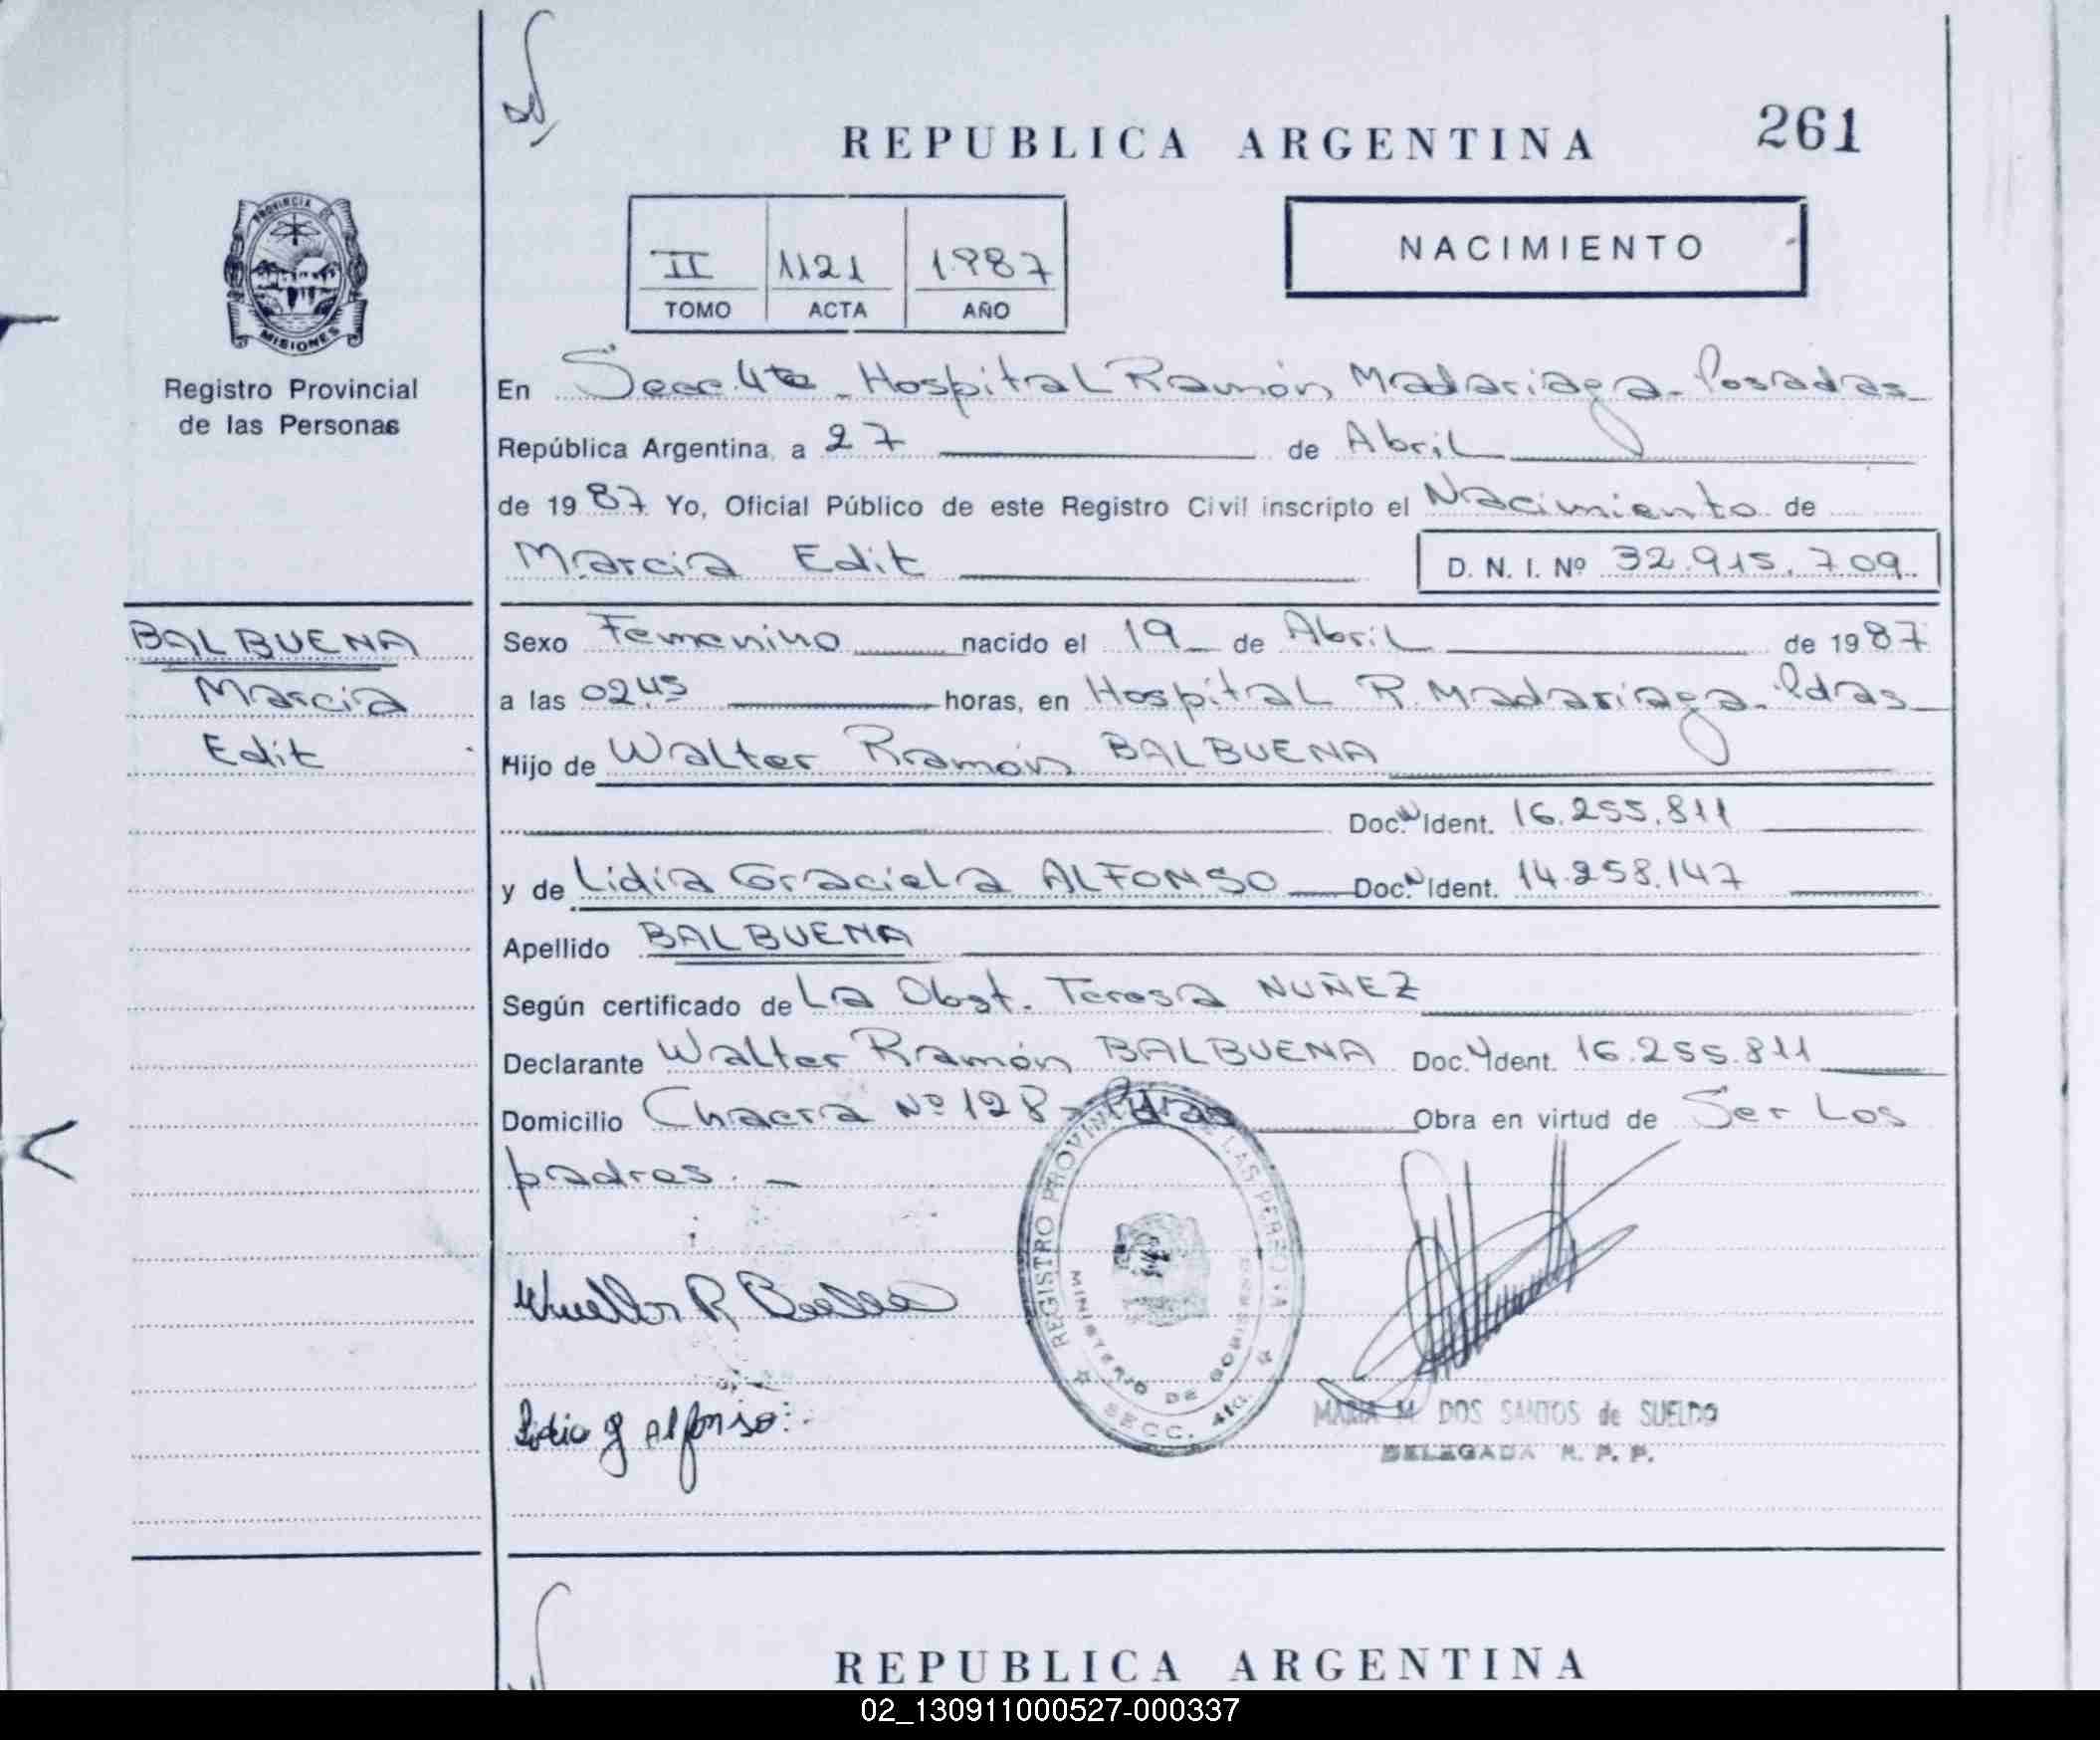 REPUBLICA ARGENTINA
261
PROVINCIA DE
MISIONES
Registro Provincial
de las Personas
II
1121
1987
TOMO
ACTA
AÑO
NACIMIENTO
En Secc. 4ta - Hospital Ramón Madariaga - Posadas
República Argentina, a 27 de Abril
de 1987 Yo, Oficial Público de este Registro Civil inscripto el Nacimiento de
Marcia Edit D. N. I. Nº 32.915.709
BALBUENA
Marcia
Edit
Sexo Femenino nacido el 19 de Abril de 1987
a las 02,45 horas, en Hospital R. Madariaga - Pdas
Hijo de Walter Ramón BALBUENA
Doc. Ident. 16.255.811
y de Lidia Graciela ALFONSO Doc. Ident. 14.258.147
Apellido BALBUENA
Según certificado de La Obst. Teresa NUÑEZ
Declarante Walter Ramón BALBUENA Doc. Ident. 16.255.811
Domicilio Chacra Nº 128 - Pdas Obra en virtud de Ser Los
padres. -
REGISTRO PROVIN DE LAS PERSONA
MINISTERIO DE GOBIERNO
SECC. 4ta.
Lidia g Alfonso
MARIA M. DOS SANTOS de SUELDO
DELEGADA R. P. P.
REPUBLICA ARGENTINA
02_130911000527-000337